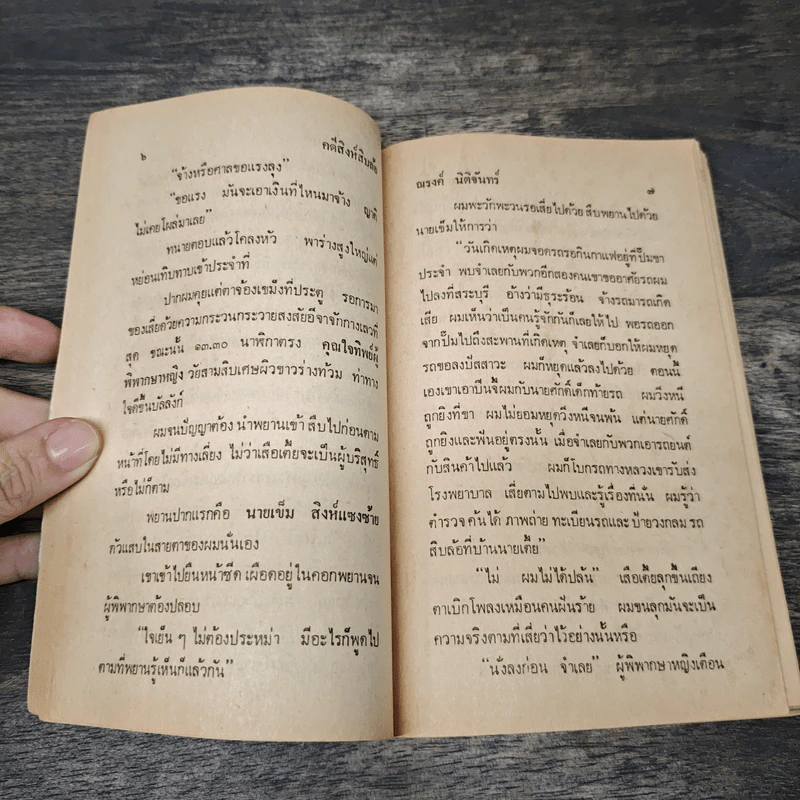 ๖
คดีสิงห์สิบล้อ
“จ้างหรือศาลขอแรงลุง”
“ขอแรง มันจะเอาเงินที่ไหนมาจ้าง ญาติ
ไม่เคยโผล่มาเลย”
ทนายตอบแล้วโคลงหัว พาร่างสูงใหญ่แต่
หย่อนเทิบทาบเข้าประจำที่
ปากผมคุยแต่ตาจ้องเขม็งที่ประตู รอการมา
ของเสี่ยด้วยความกระวนกระวายสงสัยอีจาจักกางเลวที่
สุด ขณะนั้น ๑๓.๓๐ นาฬิกาตรง คุณใจทิพย์ผู้
พิพากษาหญิง วัยสามสิบเศษผิวขาวร่างท้วม ท่าทาง
ใจดีขึ้นบัลลังก์
ผมจนปัญญาต้อง นำพยานเข้า สืบไปก่อนตาม
หน้าที่โดยไม่มีทางเลี่ยง ไม่ว่าเสือเตี้ยจะเป็นผู้บริสุทธิ์
หรือไม่ก็ตาม
พยานปากแรกคือ นายเข็ม สิงห์แซงซ้าย
ตัวแสบในสายตาของผมนั่นเอง
เขาเข้าไปยืนหน้าซีด เผือดอยู่ ในคอกพยานจน
ผู้พิพากษาต้องปลอบ
“ใจเย็น ๆ ไม่ต้องประหม่า มีอะไรก็พูดไป
ตามที่พยานรู้เห็นก็แล้วกัน”
ณรงค์ นิติจันทร์
๗
ผมพะวักพะวนรอเสี่ยไปด้วย สืบพยานไปด้วย
นายเข็มให้การว่า
“วันเกิดเหตุผมจอดรถรอกินกาแฟอยู่ที่ปั๊มขา
ประจำ พบจำเลยกับพวกอีกสองคนเขาขออาศัยรถผม
ไปลงที่สระบุรี อ้างว่ามีธุระร้อน จ้างรถมารถเกิด
เสีย ผมเห็นว่าเป็นคนรู้จักกันก็เลยให้ไป พอรถออก
จากปั๊มไปถึงสะพานที่เกิดเหตุ จำเลยก็บอกให้ผมหยุด
รถขอลงปัสสาวะ ผมก็หยุดแล้วลงไปด้วย ตอนนี้
เองเขาเอาปืนจี้ผมกับนายศักดิ์เด็กท้ายรถ ผมวิ่งหนี
ถูกยิงที่ขา ผมไม่ยอมหยุดวิ่งหนีจนพ้น แต่นายศักดิ์
ถูกยิงและฟันอยู่ตรงนั้น เมื่อจำเลยกับพวกเอารถยนต์
กับสินค้าไปแล้ว ผมก็โบกรถทางหลวงเขารับส่ง
โรงพยาบาล เสี่ยตามไปพบและรู้เรื่องที่นั่น ผมรู้ว่า
ตำรวจ ค้นได้ ภาพถ่าย ทะเบียนรถและ ป้ายวงกลม รถ
สิบล้อที่บ้านนายเตี้ย”
“ไม่ ผมไม่ได้ปล้น” เสือเตี้ยลุกขึ้นเถียง
ตาเบิกโพลงเหมือนคนฝันร้าย ผมขนลุกมันจะเป็น
ความจริงตามที่เสี่ยว่าไว้อย่างนั้นหรือ
“นั่งลงก่อน จำเลย” ผู้พิพากษาหญิงเตือน